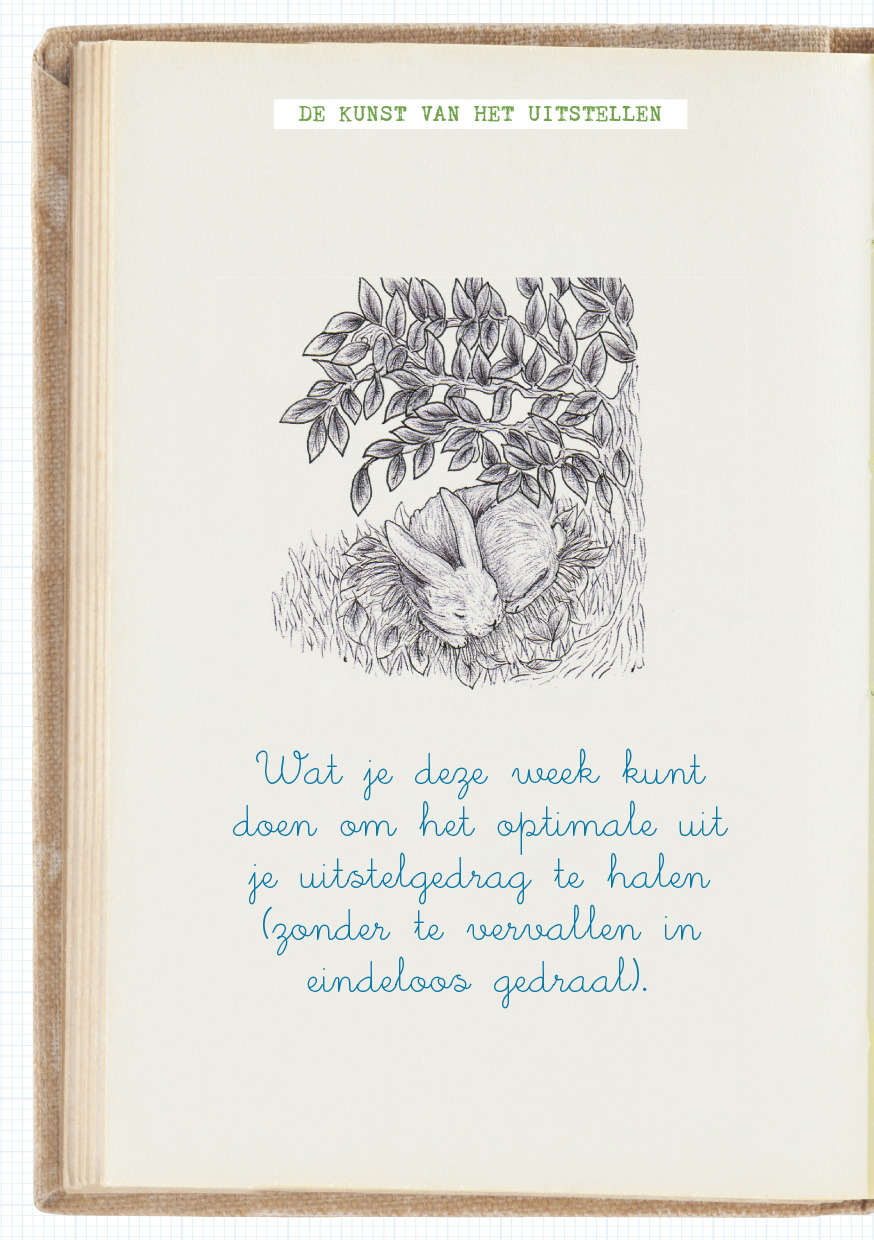 DE KUNST VAN HET UITSTELLEN
Wat je deze week kunt
doen om het optimale uit
je uitstelgedrag te halen
(zonder te vervallen in
eindeloos gedraal).